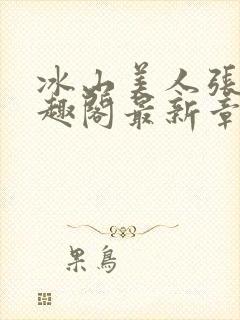 冰山美人張
趣閣最新章
果鳥